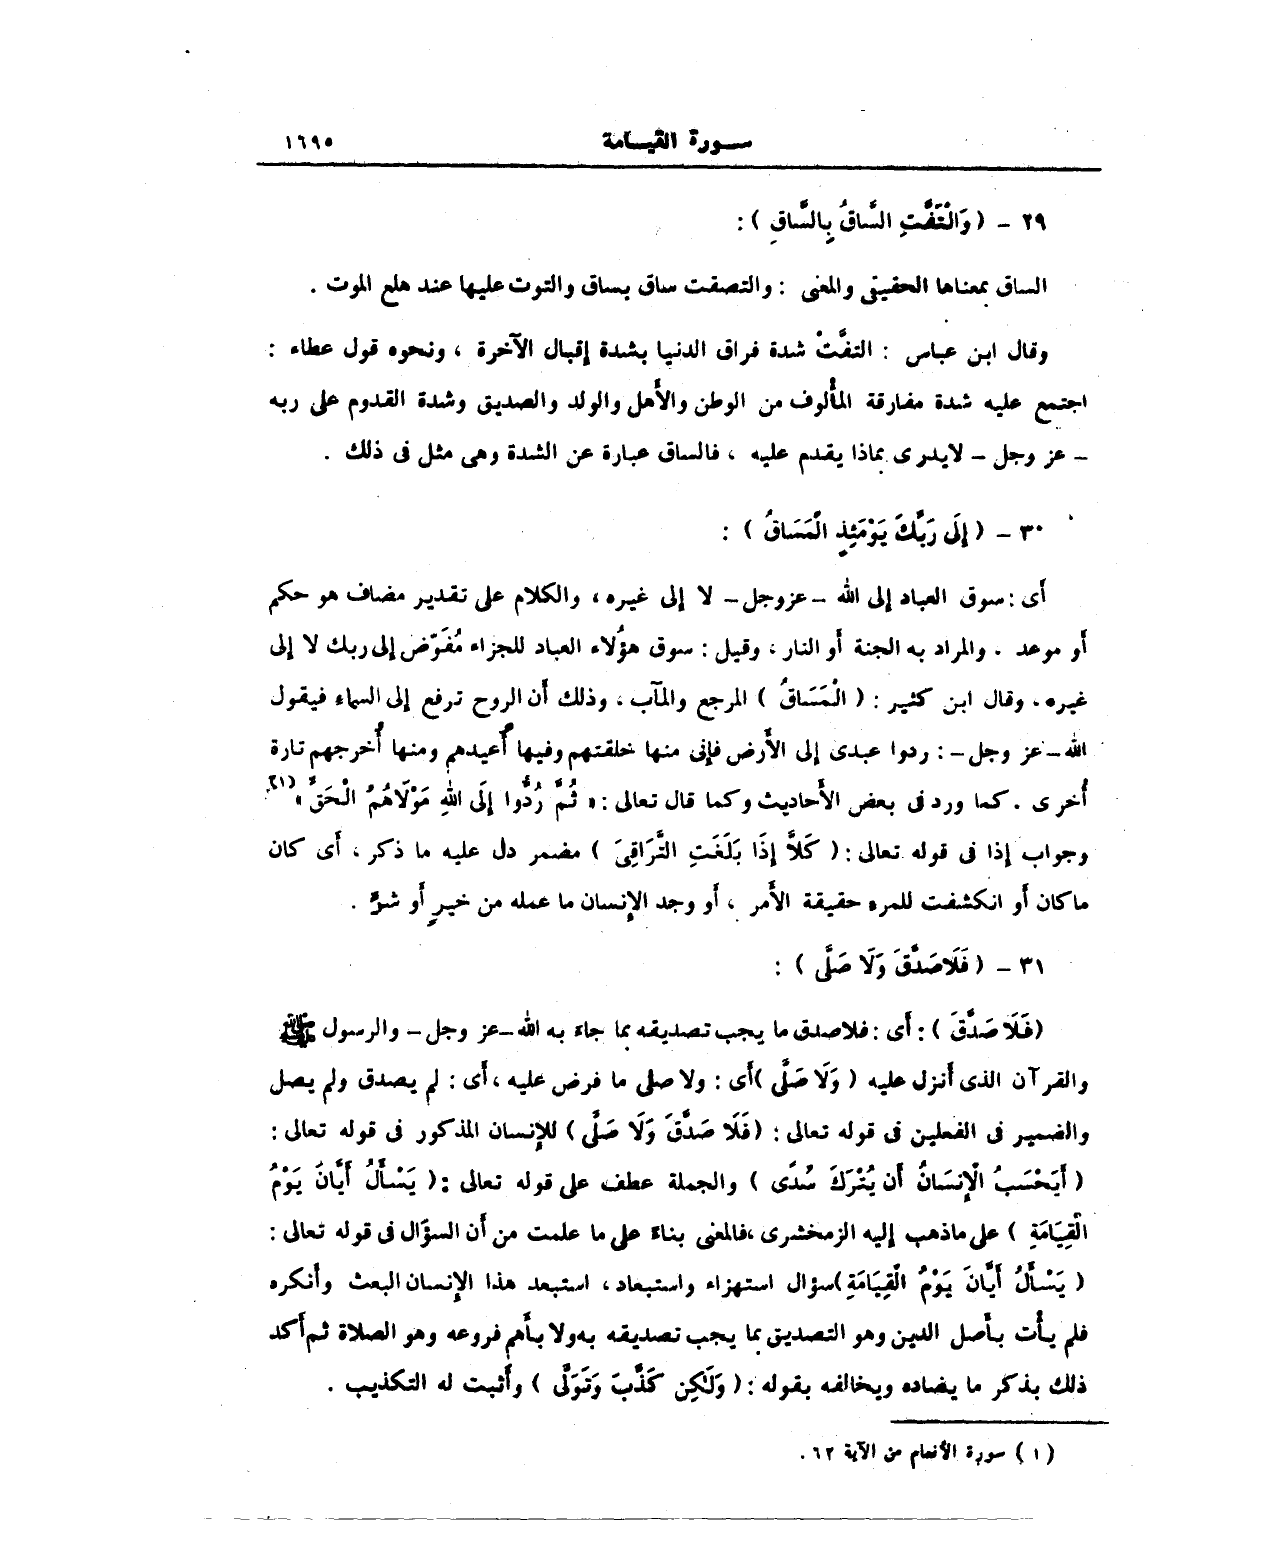 سورة القيامة ١٦٩٥
٢٩ - ( وَالْتَفَّتِ السَّاقُ بِالسَّاقِ ) :
الساق بمعناها الحقيقى والمعنى : والتصقت ساق بساق والتوت عليها عند هلع الموت .
وقال ابن عباس : التفَّتْ شدة فراق الدنيا بشدة إقبال الآخرة ، ونحوه قول عطاء :
اجتمع عليه شدة مفارقة المألوف من الوطن والأهل والولد والصديق وشدة القدوم على ربه
- عز وجل - لايدرى بماذا يقدم عليه ، فالساق عبارة عن الشدة وهى مثل فى ذلك .
٣٠ - ( إِلَى رَبِّكَ يَوْمَئِذٍ الْمَسَاقُ ) :
أى : سوق العباد إلى الله - عزوجل - لا إلى غيره ، والكلام على تقدير مضاف هو حكم
أو موعد . والمراد به الجنة أو النار ، وقيل : سوق هؤلاء العباد للجزاء مُفَوّض إلى ربك لا إلى
غيره . وقال ابن كثير : ( الْمَسَاقُ ) المرجع والمآب ، وذلك أن الروح ترفع إلى السماء فيقول
الله - عز وجل - : ردوا عبدى إلى الأرض فإنى منها خلقتهم وفيها أُعيدهم ومنها أُخرجهم تارة
أُخرى . كما ورد فى بعض الأحاديث وكما قال تعالى : « ثُمَّ رُدُّوا إِلَى اللهِ مَوْلَاهُمُ الْحَقِّ » (١).
وجواب إذا فى قوله تعالى : ( كَلاَّ إِذَا بَلَغَتِ التَّرَاقِىَ ) مضمر دل عليه ما ذكر ، أى كان
ماكان أو انكشفت للمرء حقيقة الأمر ، أو وجد الإنسان ما عمله من خيرٍ أو شرٍّ .
٣١ - ( فَلَا صَدَّقَ وَلَا صَلَّى ) :
( فَلَا صَدَّقَ ) : أى : فلاصدق ما يجب تصديقه بما جاء به الله - عز وجل - والرسول ﷺ
والقرآن الذى أنزل عليه ( وَلَا صَلَّى ) أى : ولا صلى ما فرض عليه ، أى : لم يصدق ولم يصل
والضمير فى الفعلين فى قوله تعالى : ( فَلَا صَدَّقَ وَلَا صَلَّى ) للإنسان المذكور فى قوله تعالى :
( أَيَحْسَبُ الْإِنسَانُ أَن يُتْرَكَ سُدًى ) والجملة عطف على قوله تعالى : ( يَسْأَلُ أَيَّانَ يَوْمُ
الْقِيَامَةِ ) على ماذهب إليه الزمخشرى ، فالمعنى بناءً على ما علمت من أن السؤال فى قوله تعالى :
( يَسْأَلُ أَيَّانَ يَوْمُ الْقِيَامَةِ ) سؤال استهزاء واستبعاد ، استبعد هذا الإنسان البعث وأنكره
فلم يأت بأصل الدين وهو التصديق بما يجب تصديقه به ولا بأهم فروعه وهو الصلاة ثم أكد
ذلك بذكر ما يضاده ويخالفه بقوله : ( وَلَكِن كَذَّبَ وَتَوَلَّى ) وأثبت له التكذيب .
( ١ ) سورة الأنعام من الآية ٦٢ .